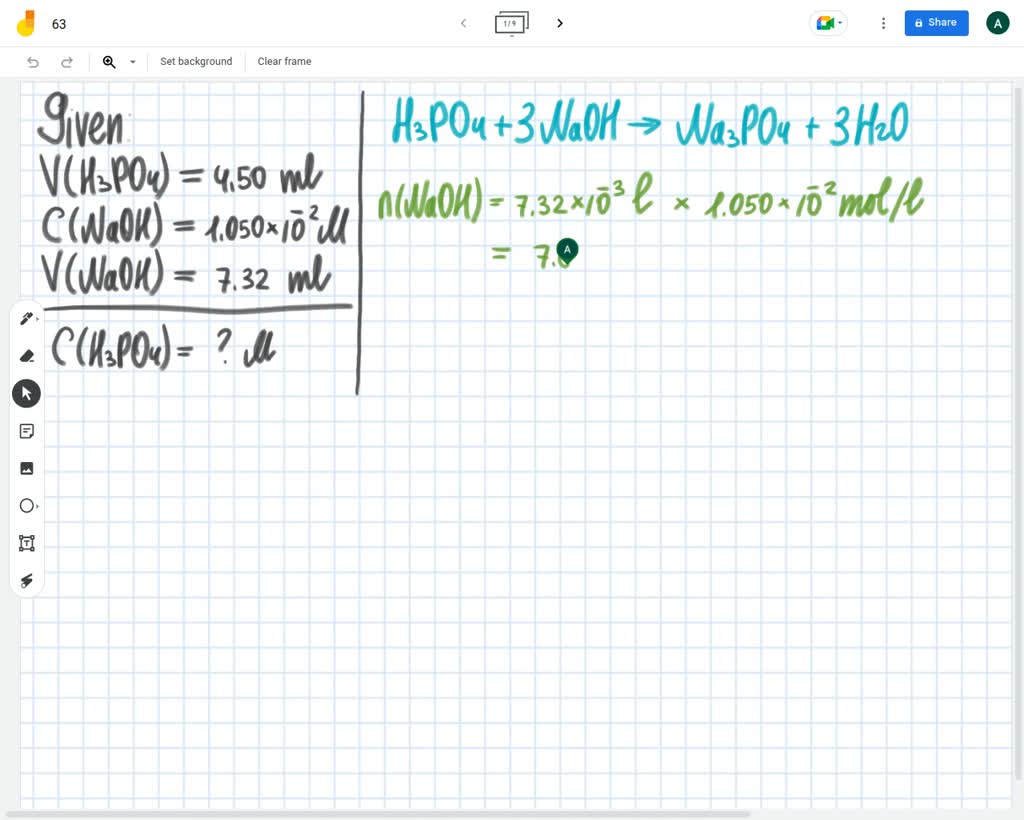 63
1/9
Share
A
Set background
Clear frame
Given:
V(H₃PO₄) = 4.50 ml
C(NaOH) = 1.050×10⁻² M
V(NaOH) = 7.32 ml
C(H₃PO₄) = ? M
H₃PO₄ + 3 NaOH → Na₃PO₄ + 3H₂O
n(NaOH) = 7.32×10⁻³ l × 1.050×10⁻² mol/l
= 7.
A